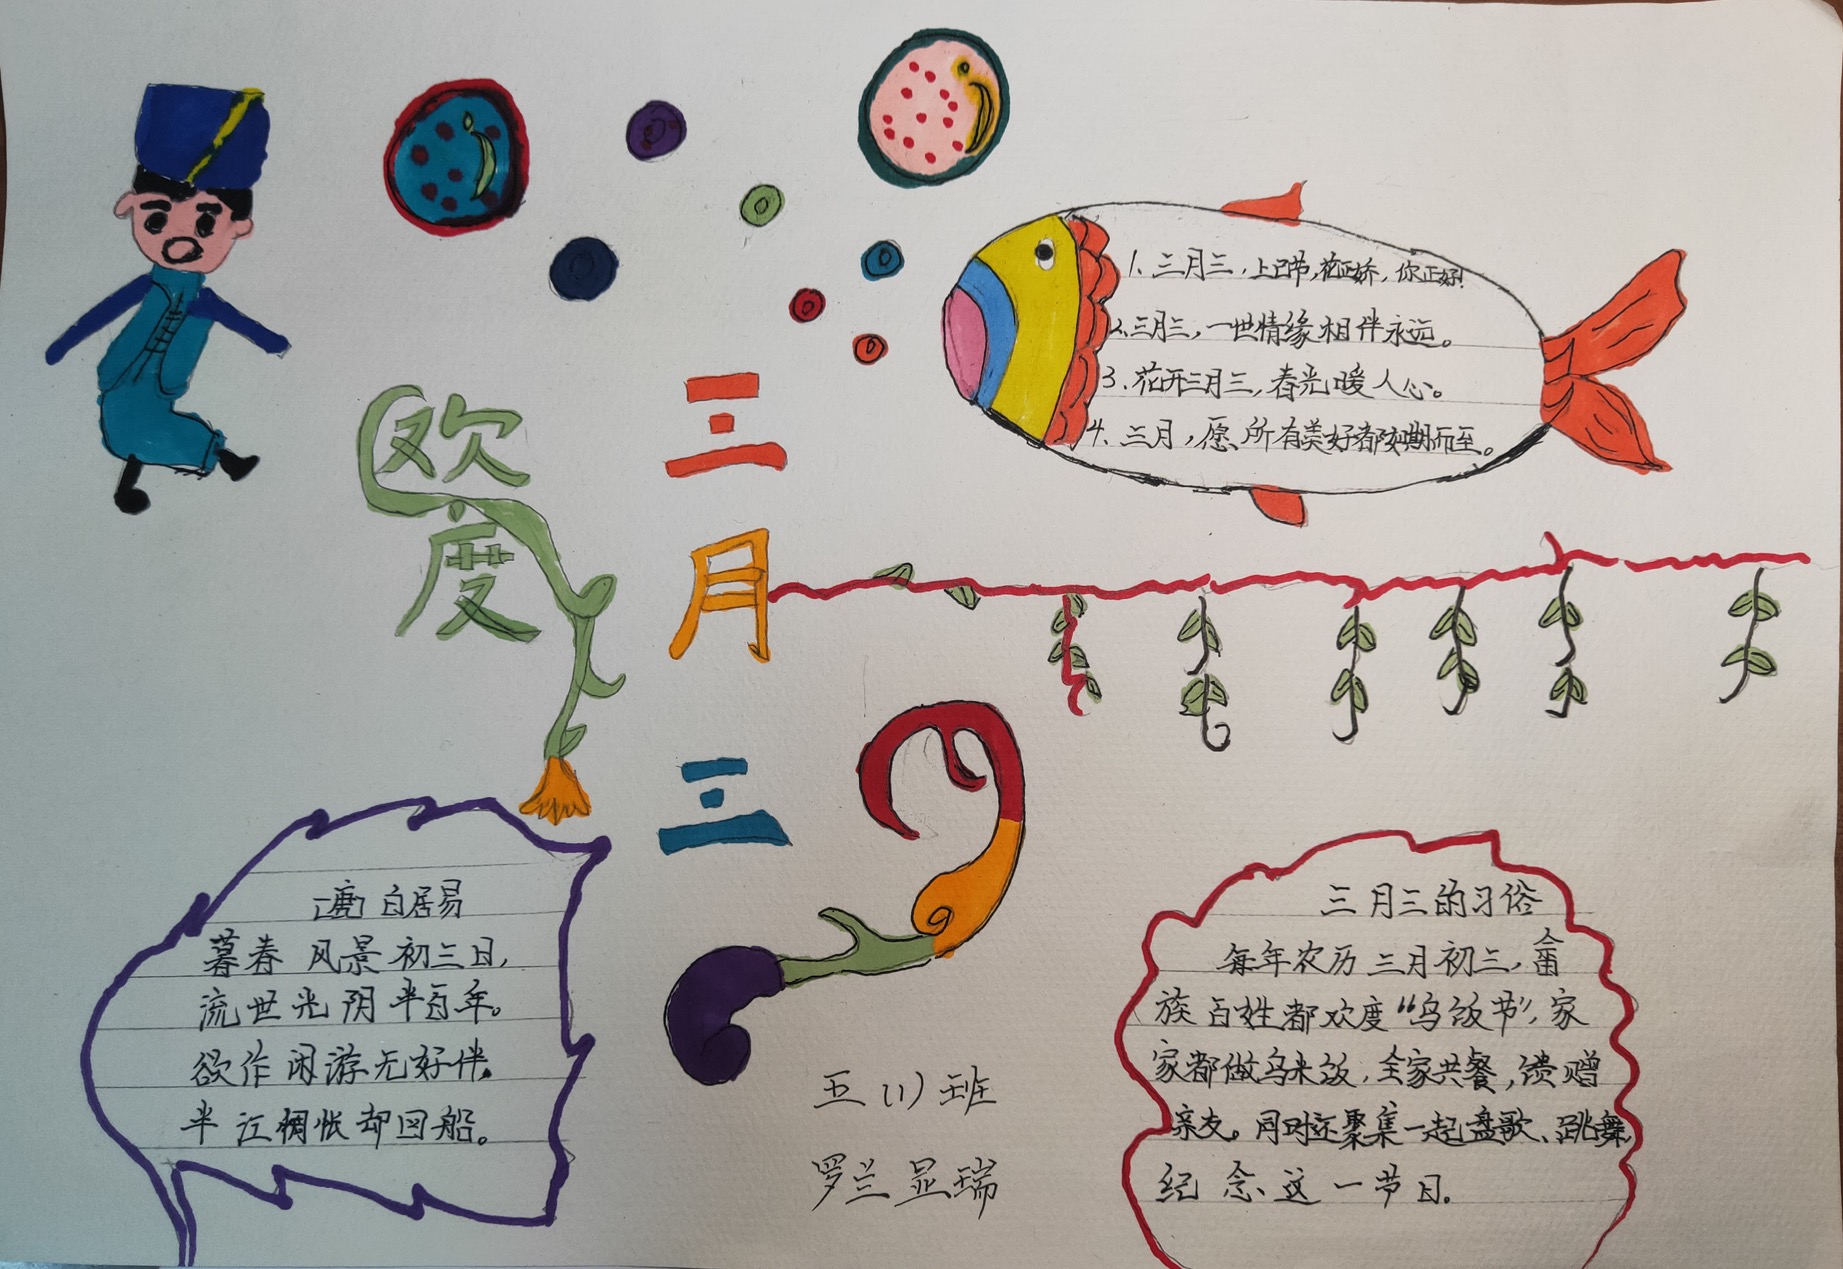 欢度
三月三
1、三月三，上巳节，花正娇，你正好！
2、三月三，一世情缘相伴永远。
3、花开三月三，春光暖人心。
4、三月，愿所有美好都如期而至。
[唐]白居易
暮春风景初三日，
流世光阴半百年。
欲作闲游无好伴，
半江惆怅却回船。
五（1）班
罗兰显瑞
三月三的习俗
每年农历三月初三，畲
族百姓都欢度“乌饭节”，家
家都做乌米饭，全家共餐，馈赠
亲友。同时还聚集一起盘歌、跳舞，
纪念这一节日。